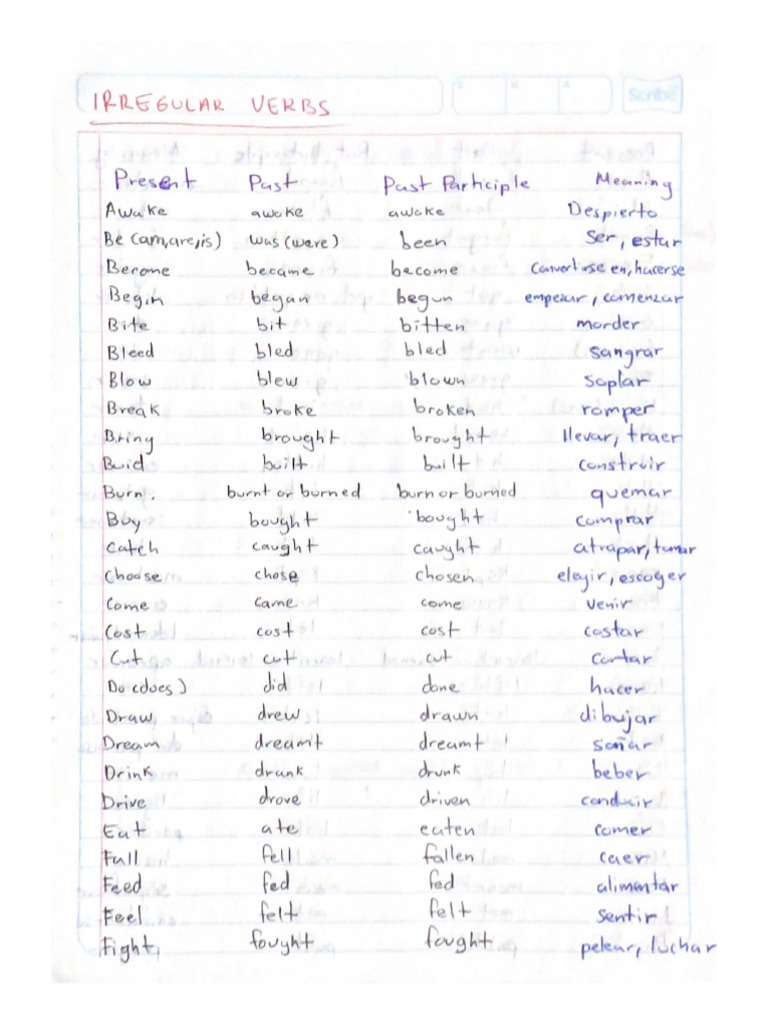 Scribe
IRREGULAR VERBS
Present Past Past Participle Meaning
Awake awoke awoke Despierto
Be (am,are,is) was (were) been Ser, estar
Become became become Convertirse en, hacerse
Begin began begun empezar, comenzar
Bite bit bitten morder
Bleed bled bled sangrar
Blow blew blown soplar
Break broke broken romper
Bring brought brought llevar, traer
Buid built built construir
Burn. burnt or burned burn or burned quemar
Buy bought bought comprar
Catch caught caught atrapar, tomar
Choose chose chosen elegir, escoger
Come came come venir
Cost cost cost costar
Cut cut cut cortar
Do (does) did done hacer
Draw drew drawn dibujar
Dream dreamt dreamt soñar
Drink drank drunk beber
Drive drove driven conducir
Eat ate eaten comer
Fall fell fallen caer
Feed fed fed alimentar
Feel felt felt sentir
Fight fought fought pelear, luchar